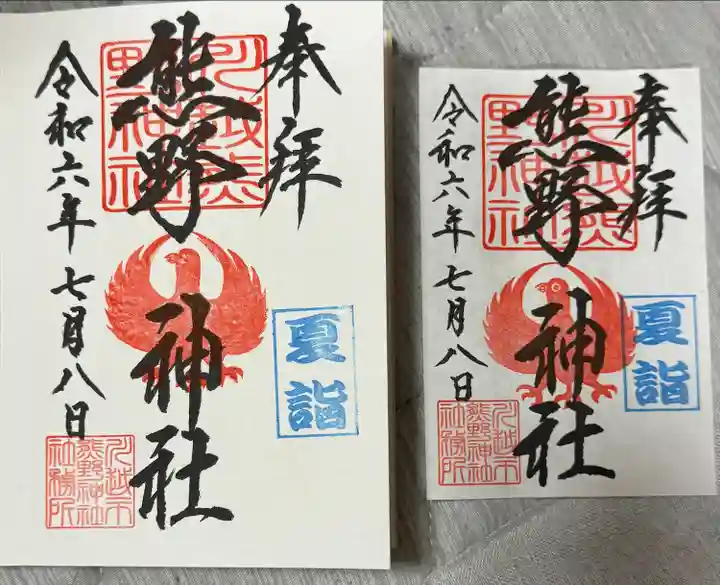 奉拝
川越熊
野神社
熊野神社
夏詣
令和六年七月八日
川越市
熊野神社
社務所
奉拝
川越熊
野神社
熊野神社
夏詣
令和六年七月八日
川越市
熊野神社
社務所